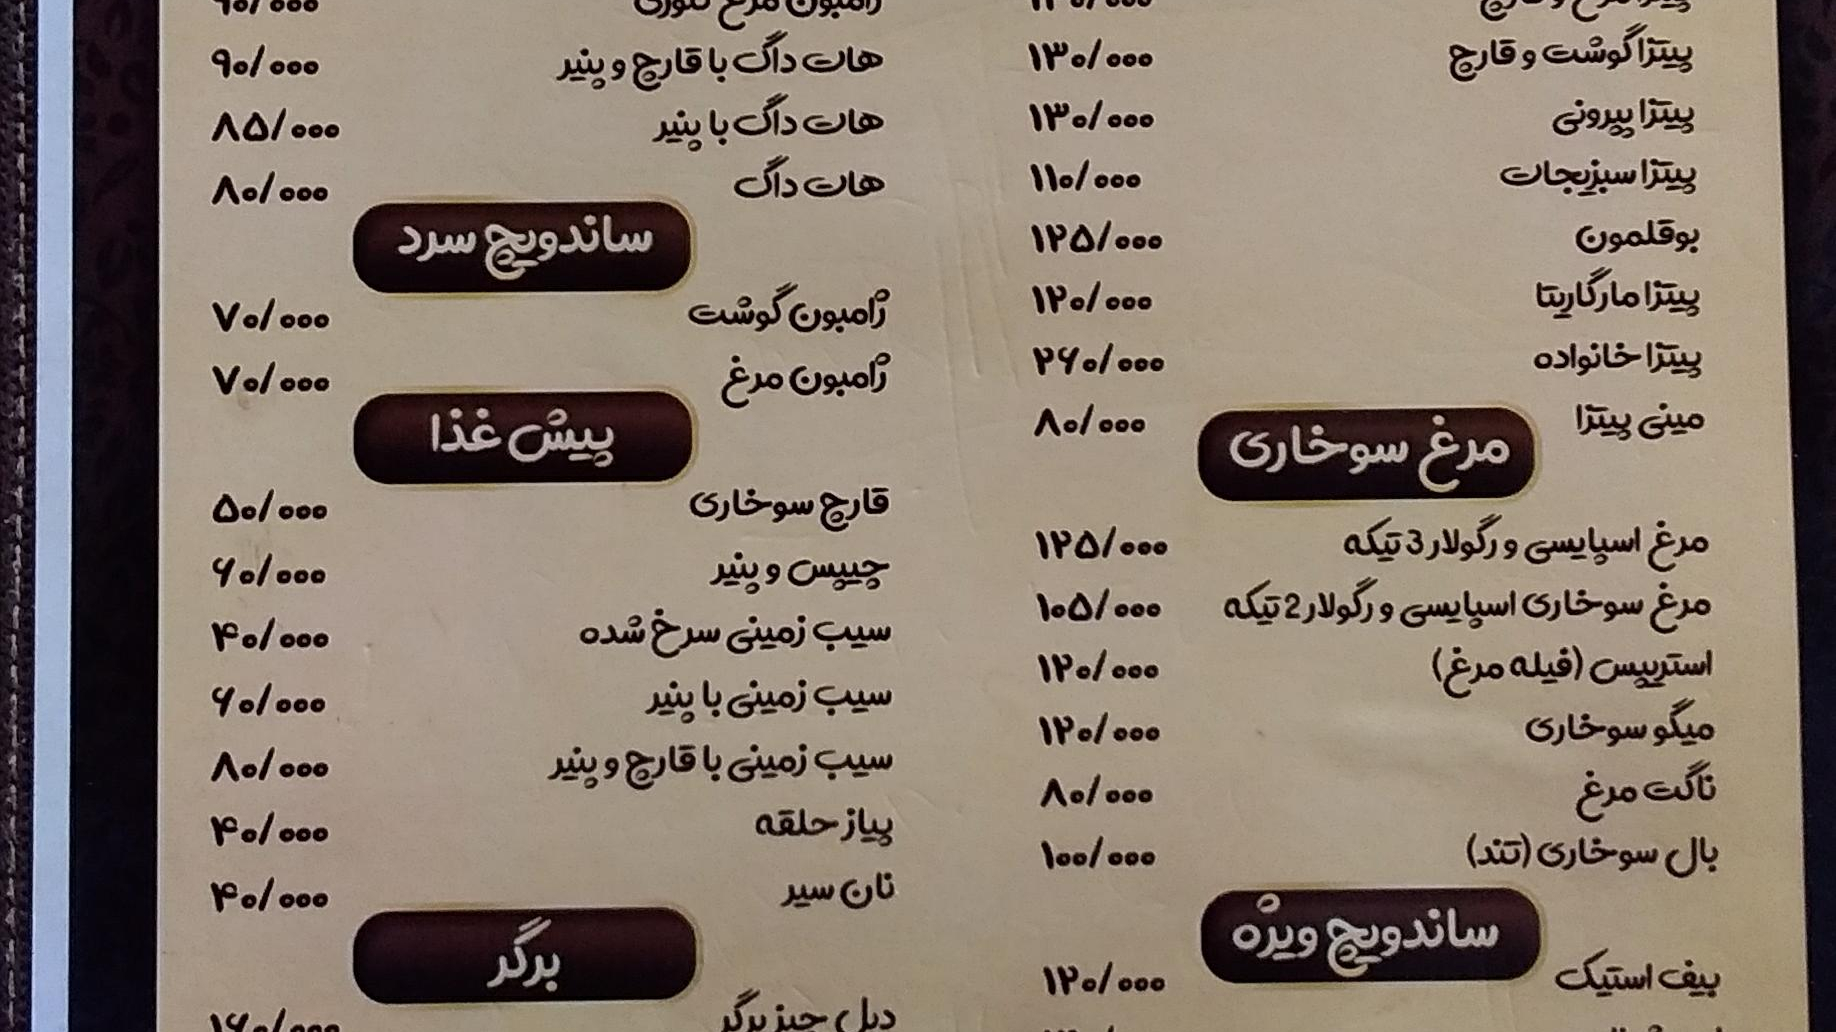 پیتزا مرغ و قارچ ۱۳۰/۰۰۰
پیتزا گوشت و قارچ ۱۳۰/۰۰۰
پیتزا پپرونی ۱۳۰/۰۰۰
پیتزا سبزیجات ۱۱۰/۰۰۰
بوقلمون ۱۲۵/۰۰۰
پیتزا مارگاریتا ۱۲۰/۰۰۰
پیتزا خانواده ۲۶۰/۰۰۰
مینی پیتزا ۸۰/۰۰۰
مرغ سوخاری
مرغ اسپایسی و رگولار 3 تیکه ۱۲۵/۰۰۰
مرغ سوخاری اسپایسی و رگولار 2 تیکه ۱۰۵/۰۰۰
استریپس (فیله مرغ) ۱۲۰/۰۰۰
میگو سوخاری ۱۲۰/۰۰۰
ناگت مرغ ۸۰/۰۰۰
بال سوخاری (تند) ۱۰۰/۰۰۰
ساندویچ ویژه
بیف استیک ۱۲۰/۰۰۰
ژامبون مرغ تنوری ۹۰/۰۰۰
هات داگ با قارچ و پنیر ۹۰/۰۰۰
هات داگ با پنیر ۸۵/۰۰۰
هات داگ ۸۰/۰۰۰
ساندویچ سرد
ژامبون گوشت ۷۰/۰۰۰
ژامبون مرغ ۷۰/۰۰۰
پیش غذا
قارچ سوخاری ۵۰/۰۰۰
چیپس و پنیر ۶۰/۰۰۰
سیب زمینی سرخ شده ۴۰/۰۰۰
سیب زمینی با پنیر ۶۰/۰۰۰
سیب زمینی با قارچ و پنیر ۸۰/۰۰۰
پیاز حلقه ۴۰/۰۰۰
نان سیر ۴۰/۰۰۰
برگر
دبل چیز برگر ۱۶۰/۰۰۰